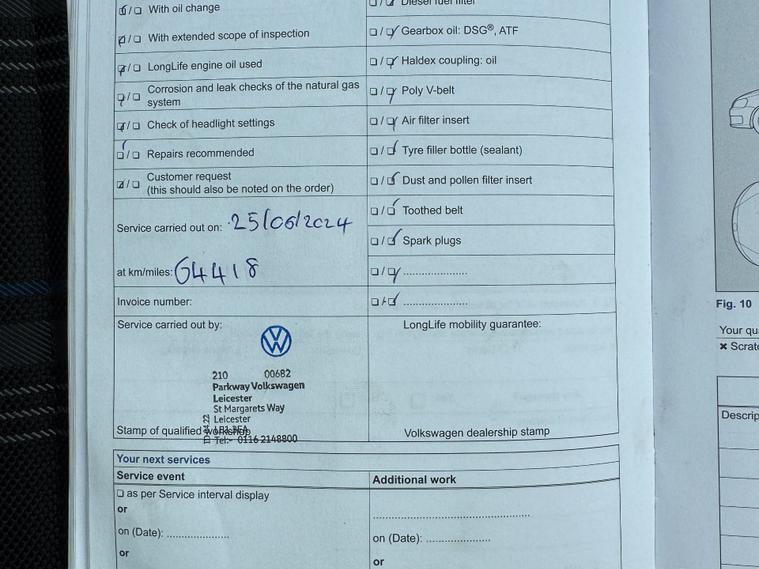 ☑/☐ With oil change
☑/☐ With extended scope of inspection
☑/☐ LongLife engine oil used
☑/☐ Corrosion and leak checks of the natural gas
system
☑/☐ Check of headlight settings
☑/☐ Repairs recommended
☑/☐ Customer request
(this should also be noted on the order)
Service carried out on: 25/06/2024
at km/miles: 64418
Invoice number:
Service carried out by:
210 00682
Parkway Volkswagen
Leicester
St Margarets Way
Leicester
Stamp of qualified workshop
Tel:- 0116 2148800
☐/☑ Diesel fuel filter
☐/☑ Gearbox oil: DSG®, ATF
☐/☑ Haldex coupling: oil
☐/☑ Poly V-belt
☐/☑ Air filter insert
☐/☑ Tyre filler bottle (sealant)
☐/☑ Dust and pollen filter insert
☐/☑ Toothed belt
☐/☑ Spark plugs
☐/☑ ......................
☐/☑ ......................
LongLife mobility guarantee:
Volkswagen dealership stamp
Your next services
Service event
☐ as per Service interval display
or
on (Date): .....................
or
Additional work
.....................................................
on (Date): ......................
or
Fig. 10
Your qu
✖ Scrat
Descrip